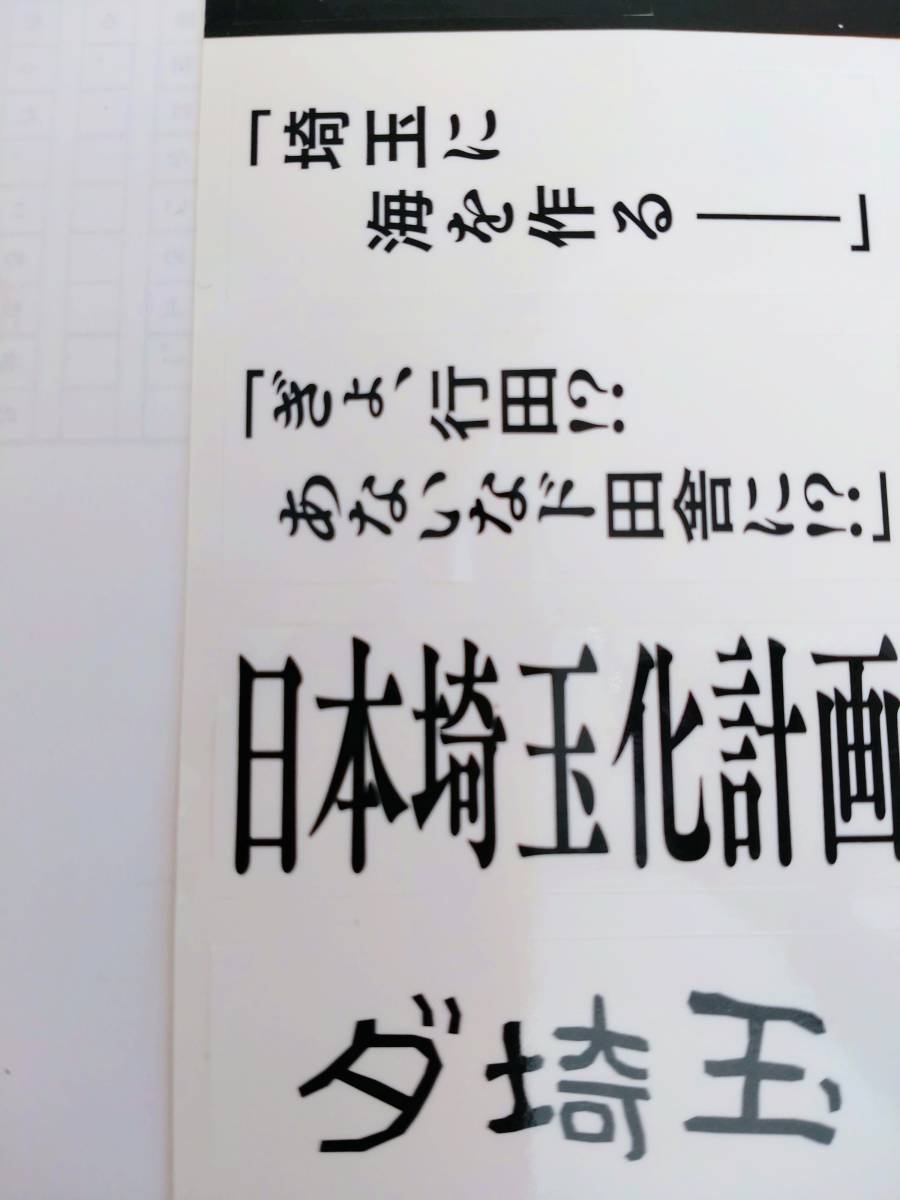 「埼玉に
海を作る――」
「ぎょ、行田!?
あないなド田舎に!?」
日本埼玉化計画
ダ埼玉